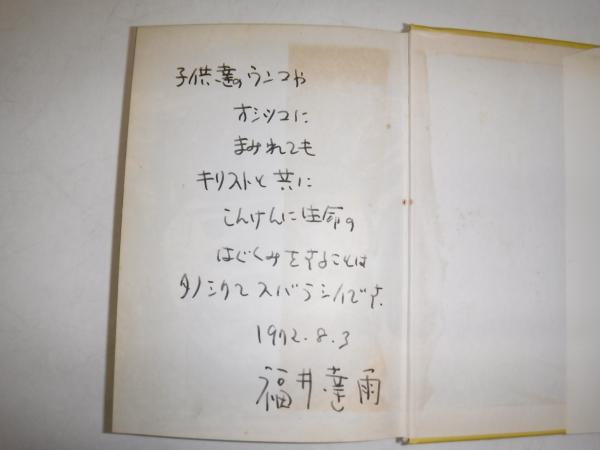 子供達のウンコや
オシッコに
まみれても
キリストと共に
しんけんに生命の
はぐくみをすることは
タノシクてスバラシイです.
1972.8.3
福井達雨